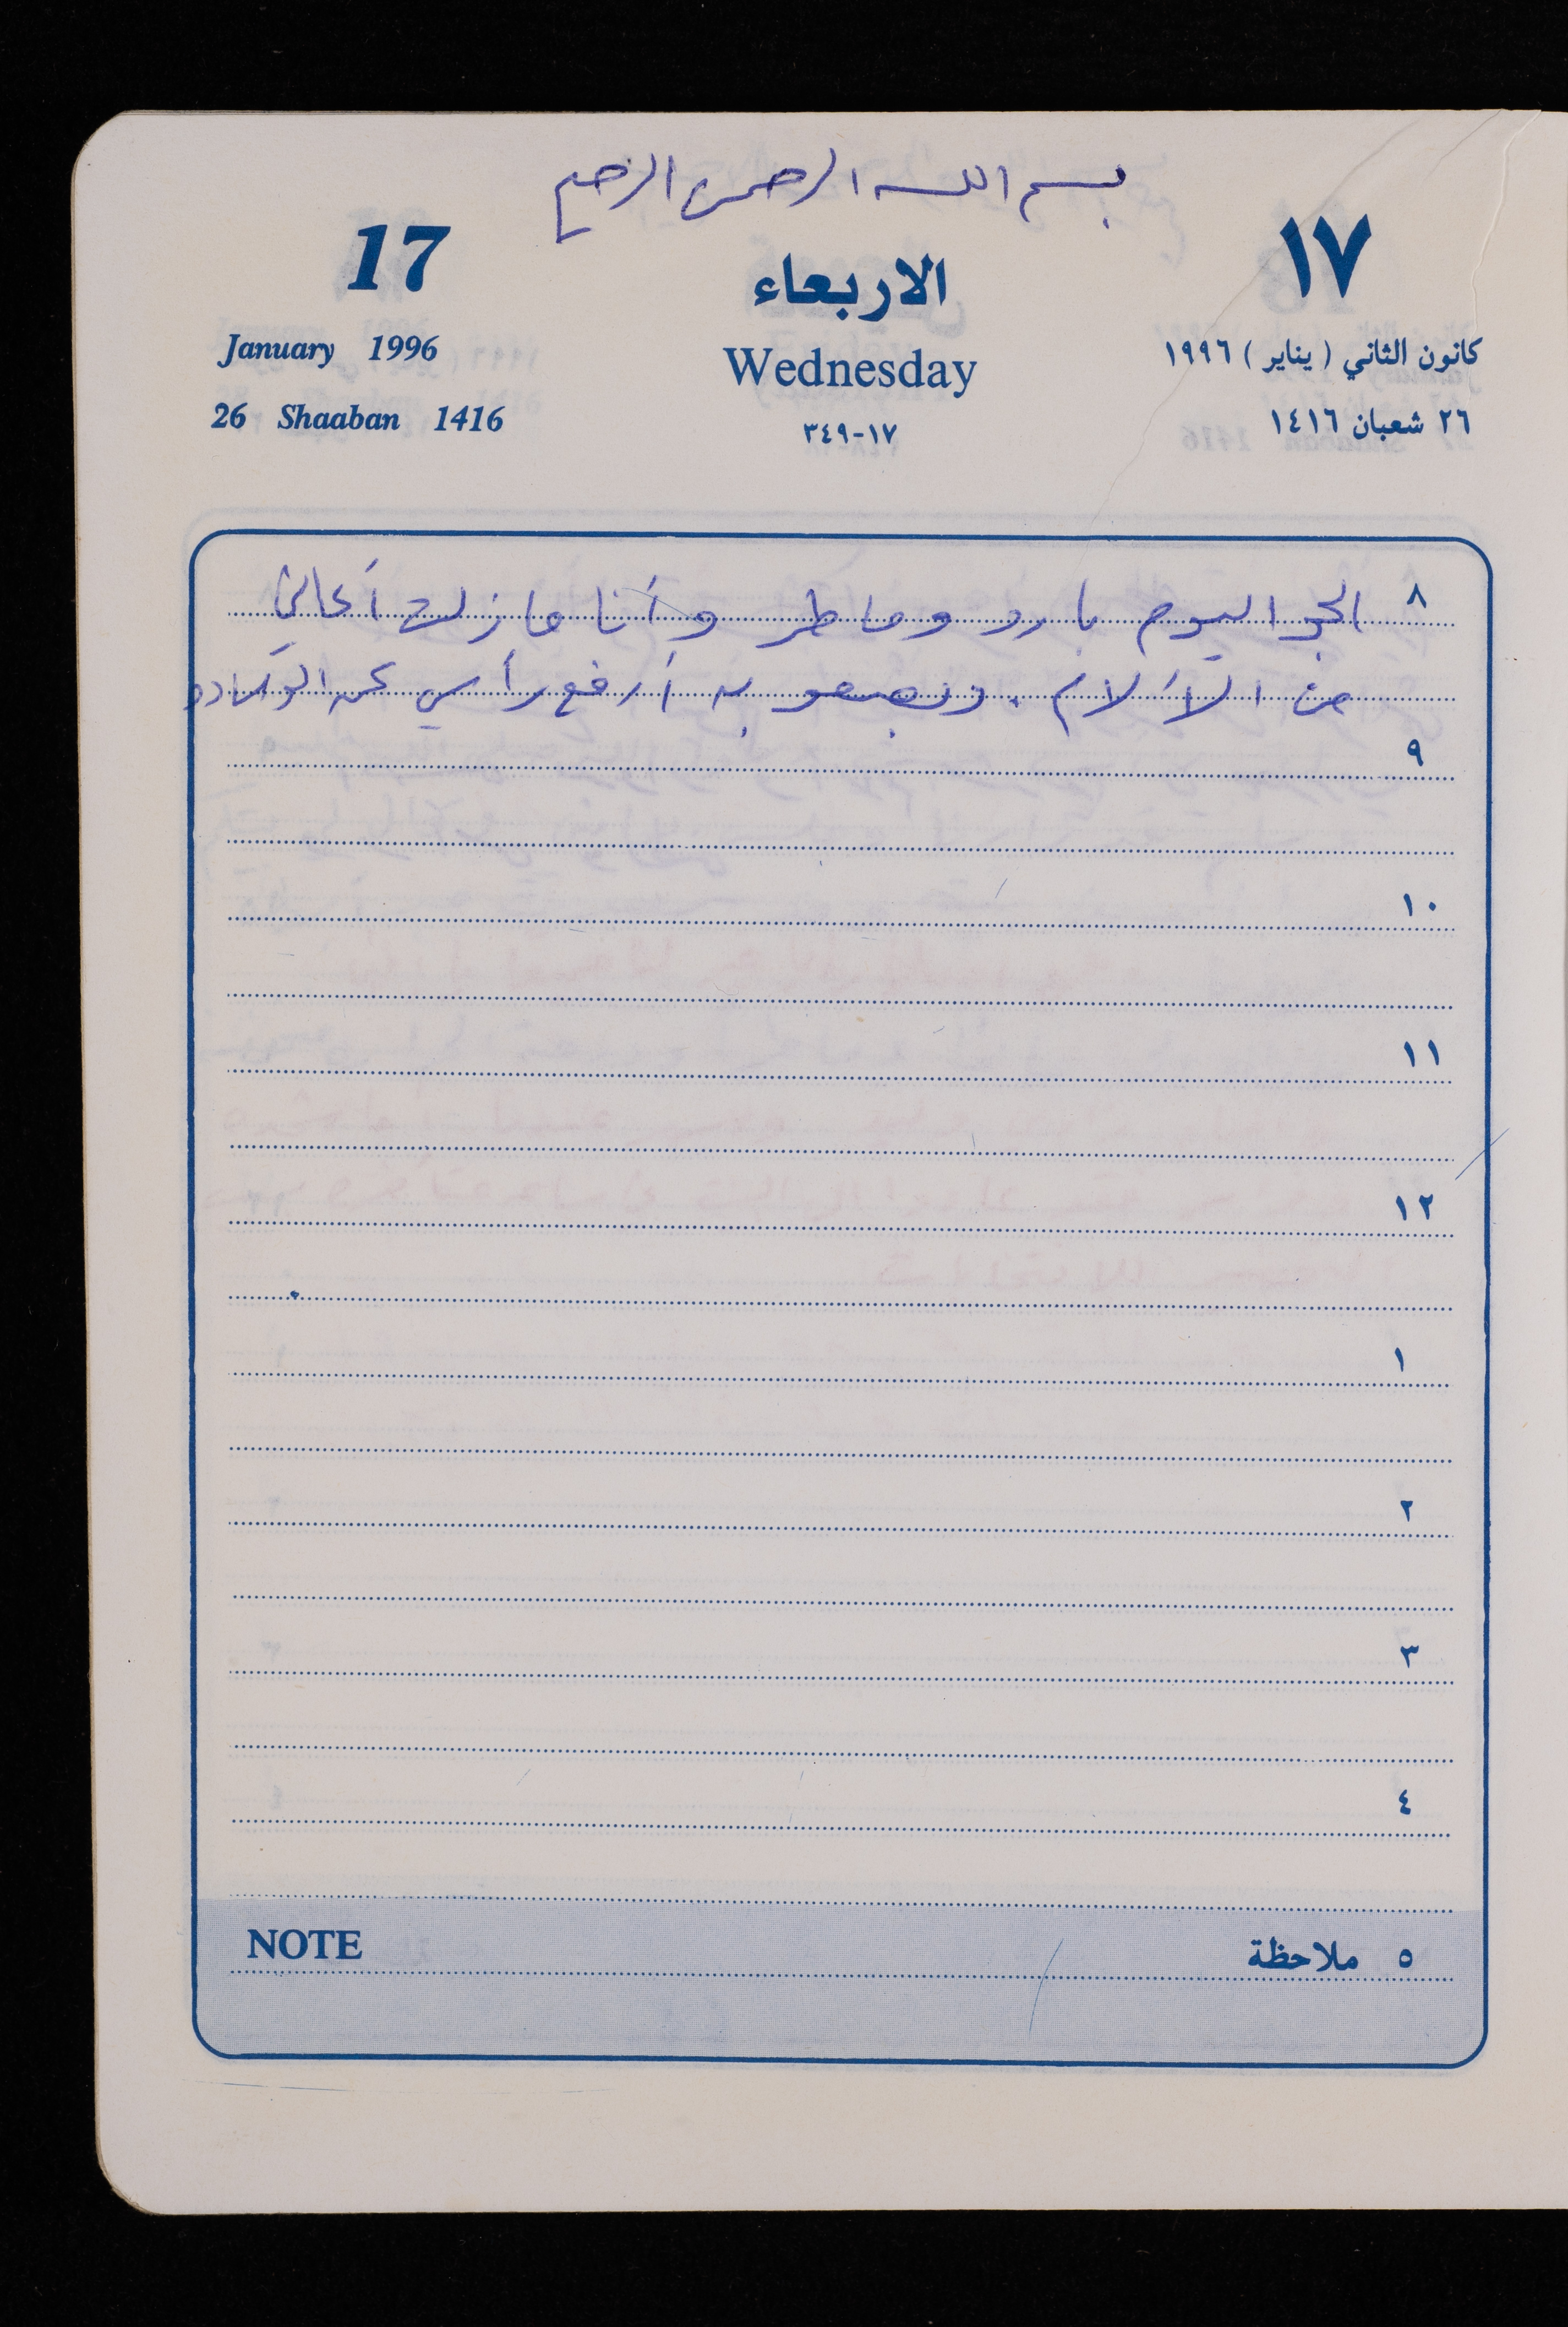 بسم الله الرحمن الرحيم
17
الاربعاء
١٧
January 1996
Wednesday
كانون الثاني (يناير) ١٩٩٦
26 Shaaban 1416
٣٤٩-١٧
٢٦ شعبان ١٤١٦
٨ الجو اليوم بارد وماطر وأنا مازلت أعاني
من الآلام. وبصعوبه أرفع رأسي عن الوساده
٩
١٠
١١
١٢
١
٢
٣
٤
NOTE
٥ ملاحظة